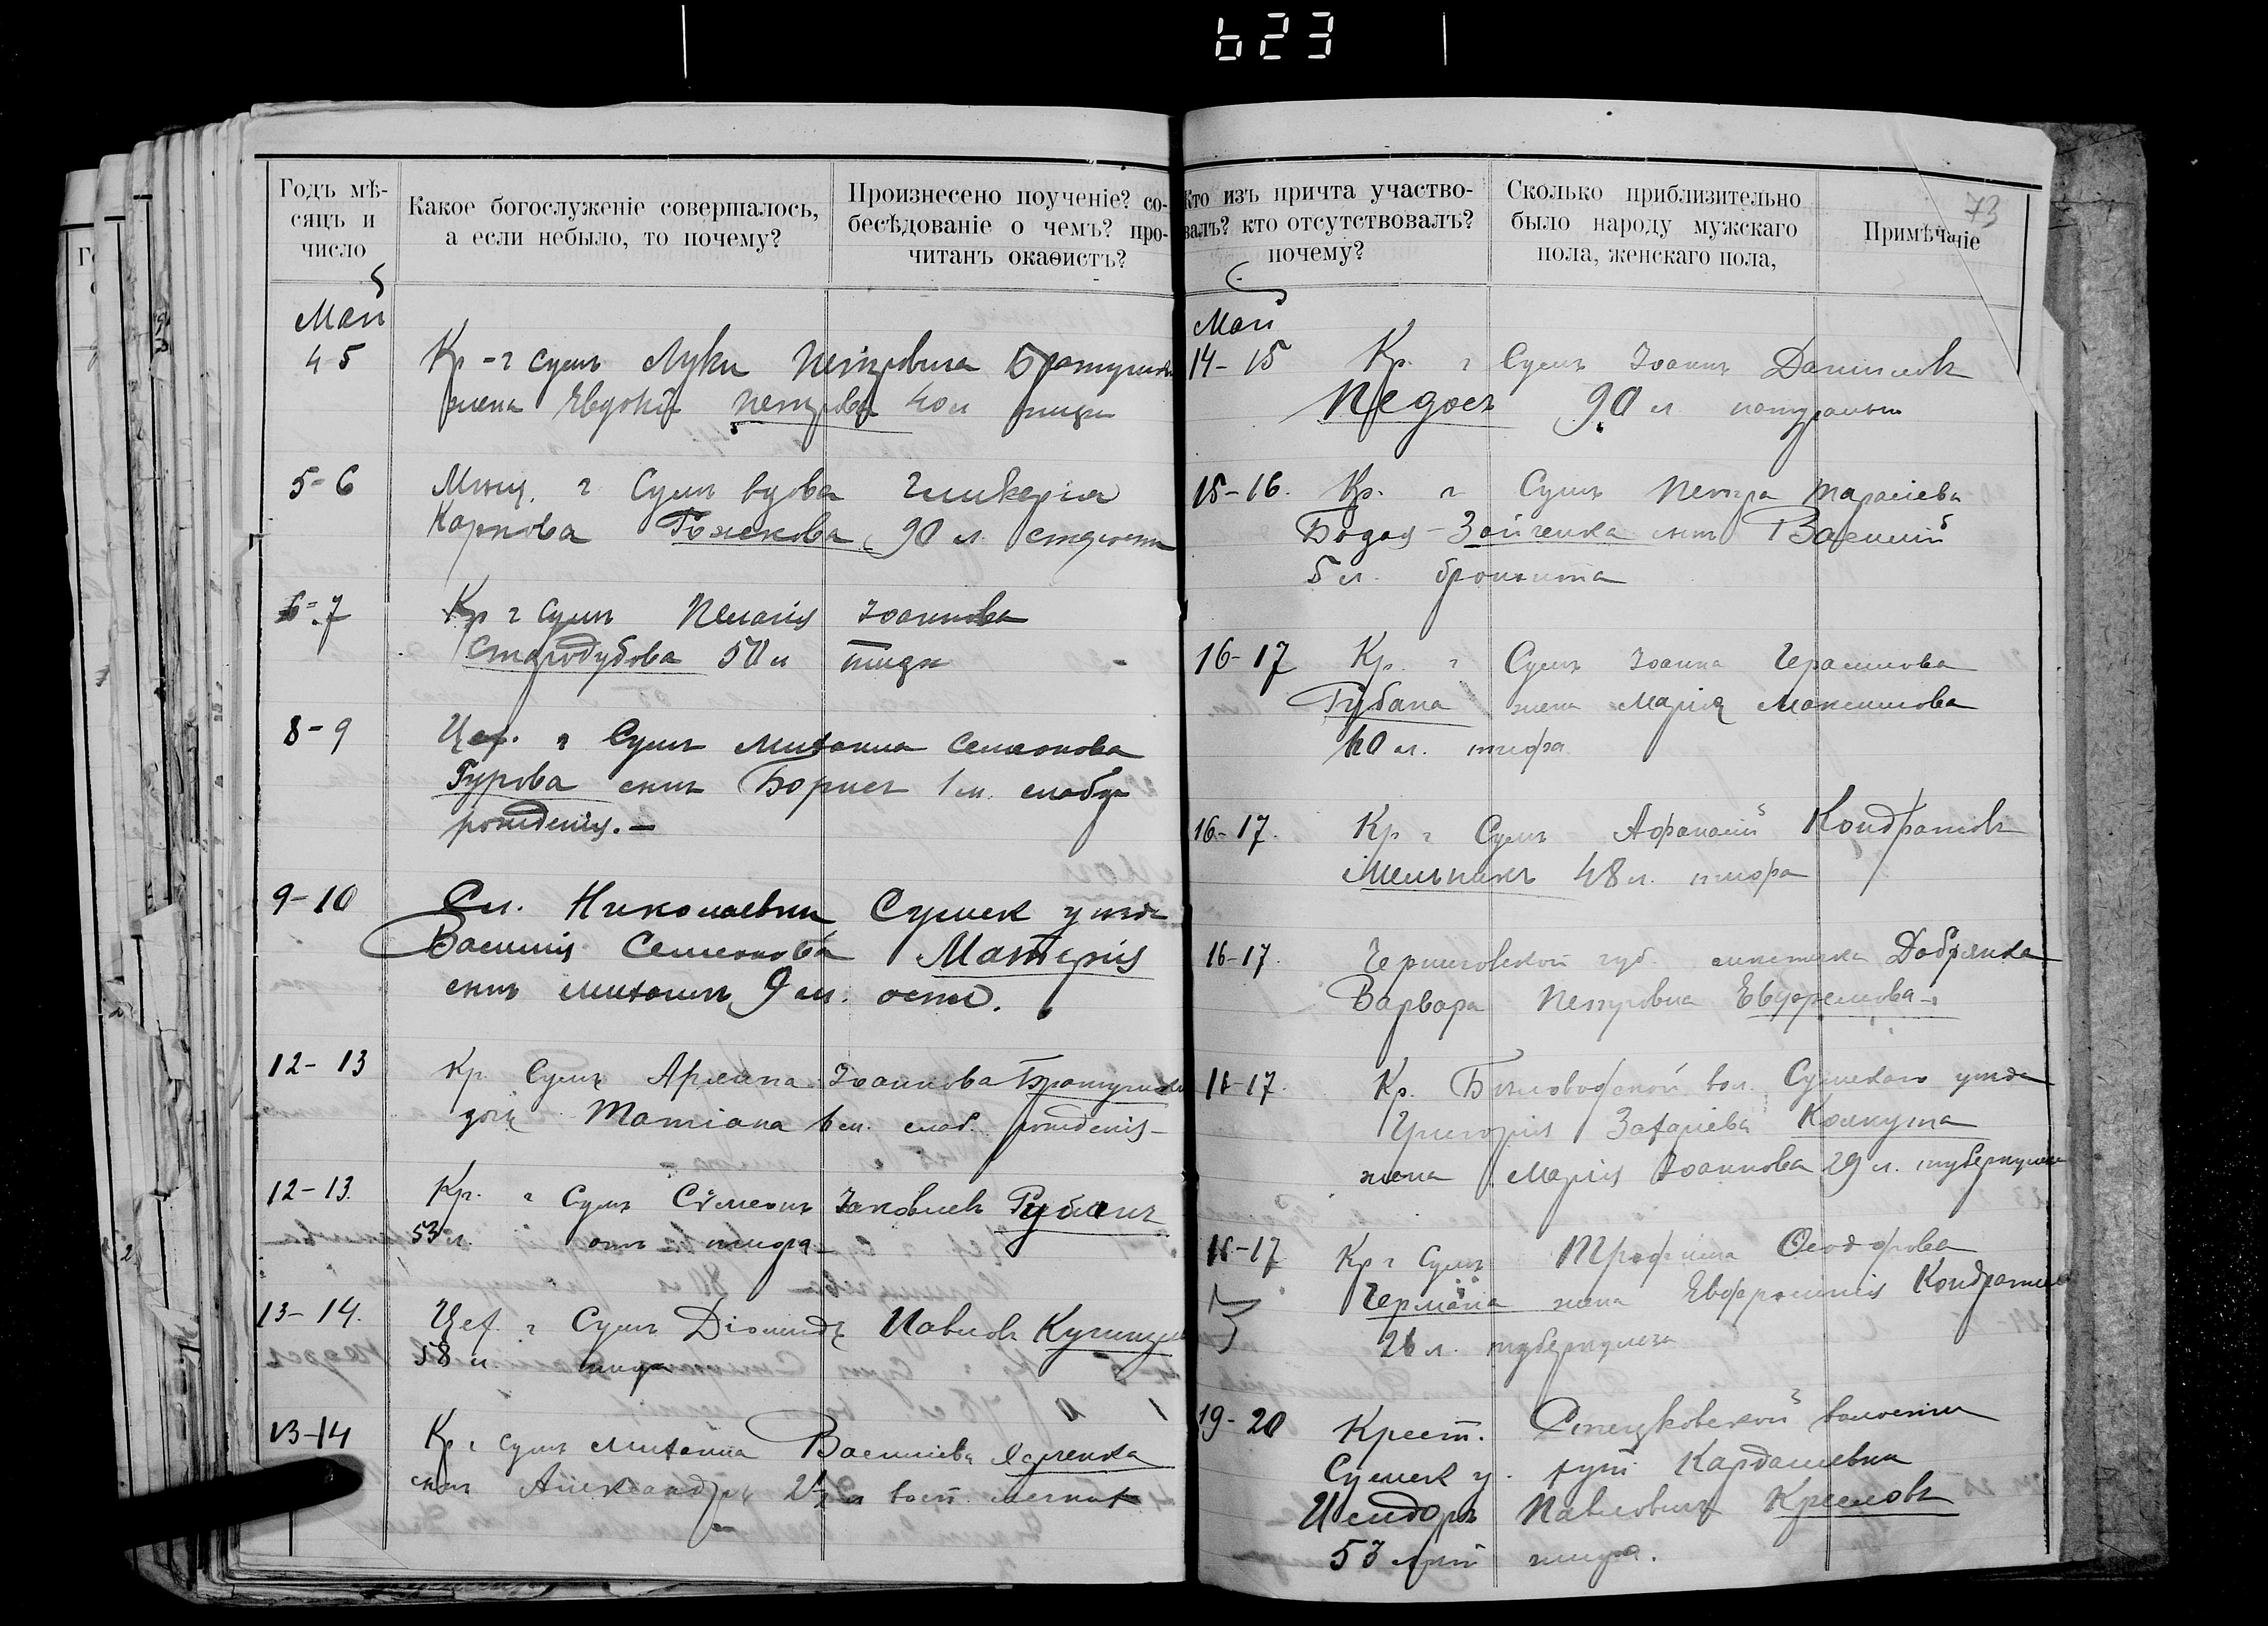 623
Годъ мѣ-
сяцъ и
число
Какое богослуженіе совершалось,
а если небыло, то почему?
Произнесено поученіе? со-
бесѣдованіе о чемъ? про-
читанъ окаѳистъ?
Май
4-5 Кр-г Сумъ Луки Петровича
жена Евдокія Петрова 40 л
5-6 Мѣщ. г Сумъ вдова Гликерія
Карпова 90 л. старости
6-7 Кр г Сумъ Пелагія Іоаннова
Стародубова 50 л тифа
8-9 Цех. г Сумъ Михаила Семенова
Гурова сынъ Борисъ 1 м. слабор
рожденія.—
9-10 Сл. Николаевки Сумск уѣзда
Василія Семенова
сынъ Михаилъ, 9 м. оспа.
12-13 Кр. Сумъ Іоаннова
дочь Татіана слаб. рожденія-
12-13. Кр. г Сумъ Сѵмеонъ Іаковлевъ Рубанъ
53 л. отъ тифа
13-14. Цех. г Сумъ Діомидъ Павловъ
58 л. тифа
13-14 Кр г Сумъ Михаила Васильева
сынъ Александръ 2½ л восп. легкихъ
73
Кто изъ причта участво-
валъ? кто отсутствовалъ?
почему?
Сколько приблизительно
было народу мужскаго
пола, женскаго пола,
Примѣчаніе
Май
14-15 Кр. г Сумъ Іоаннъ Даниловъ
90 л.
15-16. Кр. г Сумъ Петра Тарасіева
Зайченка сынъ Василій
5 л. бронхита
16-17 Кр. г Сумъ Іоанна Герасимова
Губана жена Марія Максимова
40 л. тифа
16-17. Кр г Сумъ Афанасій Кондратовъ
Мельникъ 48 л. тифа
16-17. Черниговской губ. мѣстечка Добрянка
Варвара Петровна Евфремова
16-17. Кр. Бѣловодской вол. Сумскаго уѣзда
Григорія Захаріева
жена Марія Іоаннова 29 л. туберкулеза
16-17 Кр г Сумъ Трофима Ѳеодорова
жена Евфросинія
26 л. туберкулеза
19-20 Крест. Стецковской волости
Сумск у. хут Кардашевки
Исидоръ Павловичъ
53 лѣтъ тифа.